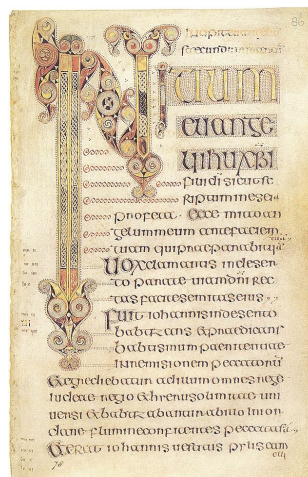 86
INITIUM
euange
lii ihu xpi
fili di sicut sc
riptum in esei
profeta Ecce mitto an
gelum meum ante faciem
tuam qui praeparabit uiā
Uox clamantis in deser
to parate uiam dni rec
tas facite semitas eius
Fuit iohannis in deserto
babtizans & praedicans
babtismum paenitentiae
in remisionem peccatorum
& egrediebatur ad illum omnes
iudeae regio & hierusolimitae uni
uersi & babtizabantur ab illo in ior
dane flumine confitentes peccata sua
& erat iohannis uestitus pylis cam
eli